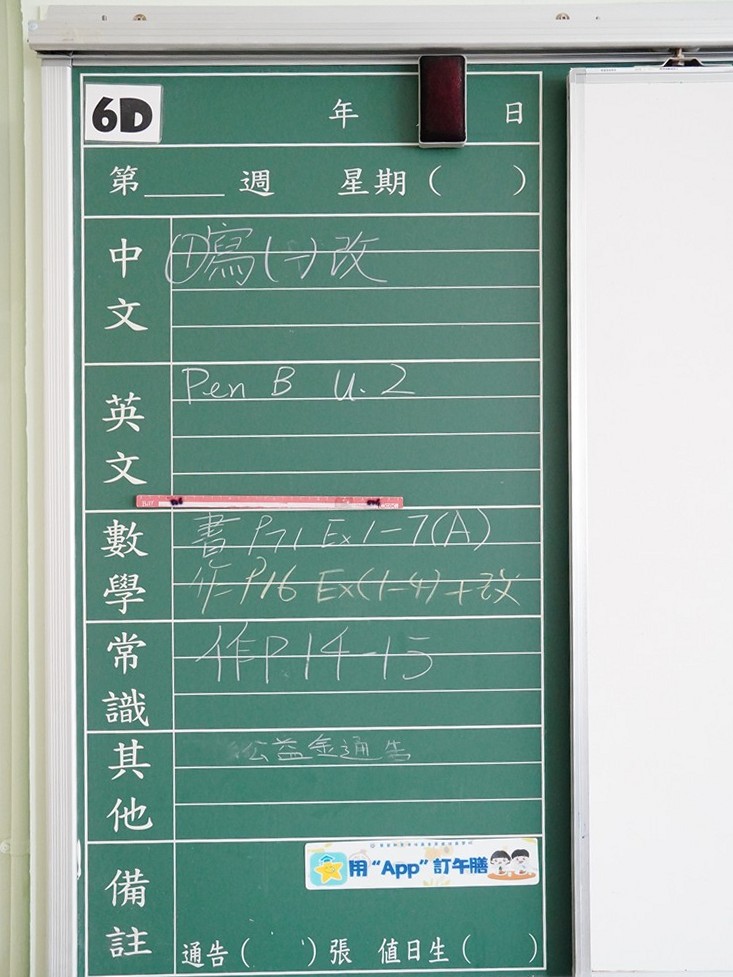 6D 年 日
第____週 星期( )
中文 ①寫(一)改
英文 Pen B U.2
數學 書 P71 Ex 1-7(A)
作 P16 Ex(1-4)+改
常識 作P.14-15
其他 公益金通告
備註 用“App”訂午膳
通告( )張 值日生( )